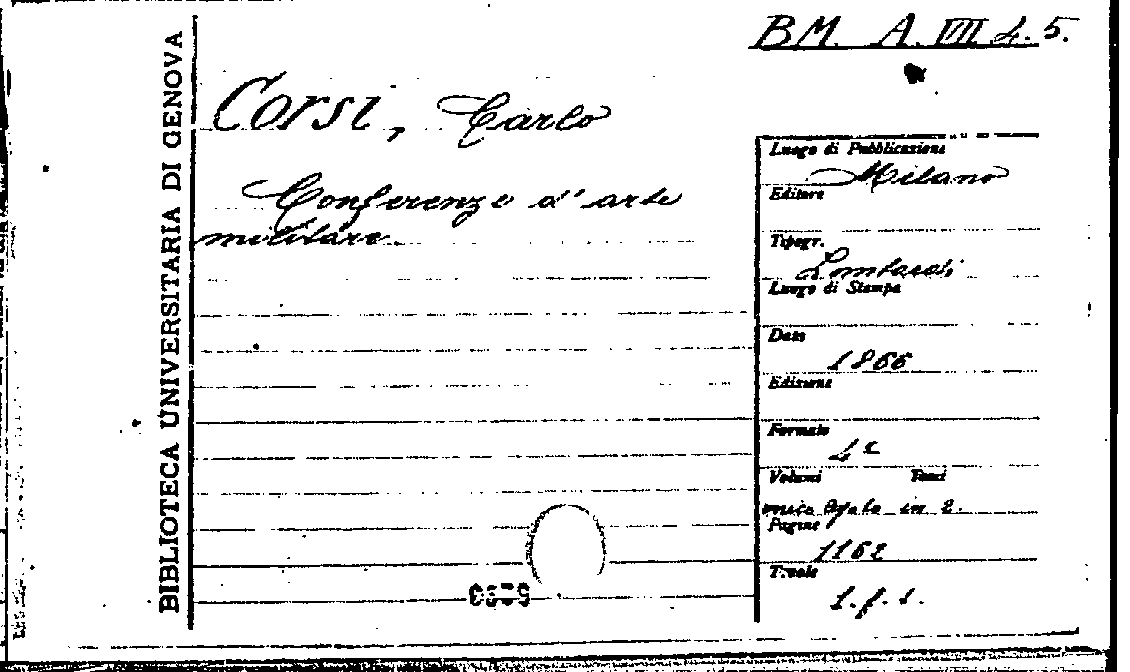 BM. A. VIII 4. 5.
BIBLIOTECA UNIVERSITARIA DI GENOVA
Corsi, Carlo
Conferenze d'arte
militare.
Luogo di Pubblicazione
Milano
Editore
Tipogr.
Lombardi
Luogo di Stampa
Data
1866
Edizione
Formato
4°
Volumi Tomi
in 2.
Pagine
1162
Tavole
1. f. s.